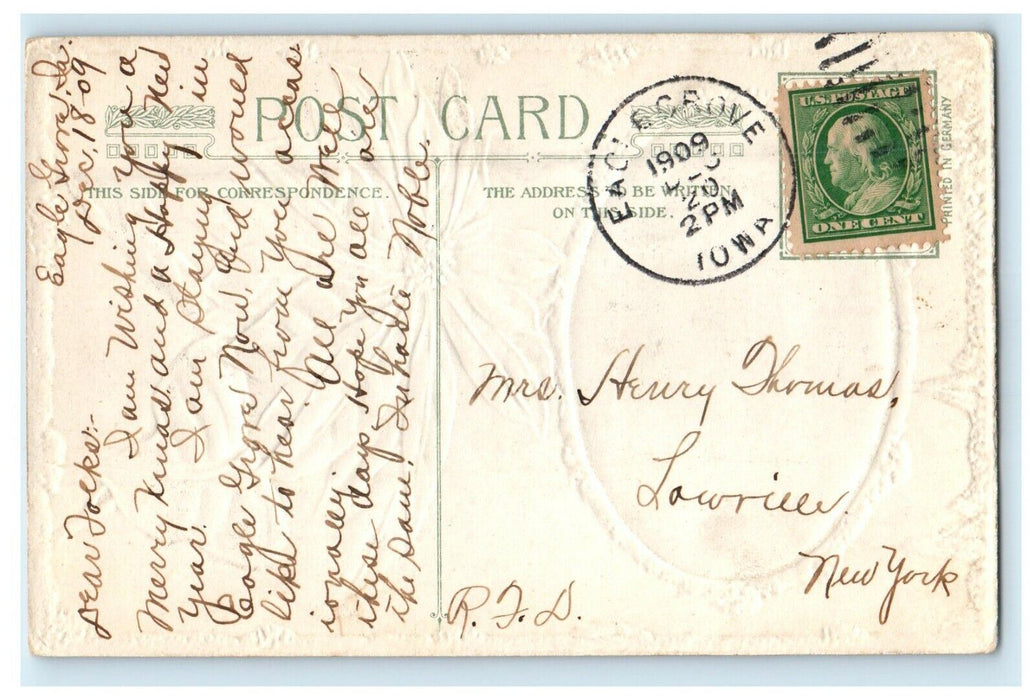 Eagle Grove, Ia.
Dec, 18-09
Dear Folks:-
I am Wishing you a
Merry Xmas and a Happy New
Year. I am Staying in
Eagle Grove Now, And would
like to hear from you occas
ionally All are Well
these days Hope you all are
the same,
Noble.
POST CARD
THIS SIDE FOR CORRESPONDENCE.
THE ADDRESS TO BE WRITTEN
ON THIS SIDE.
EAGLE GROVE
1909
DEC
20
2 PM
IOWA
U.S. POSTAGE
ONE CENT
PRINTED IN GERMANY
Mrs. Henry Thomas,
Lowville.
New York
R. F. D.